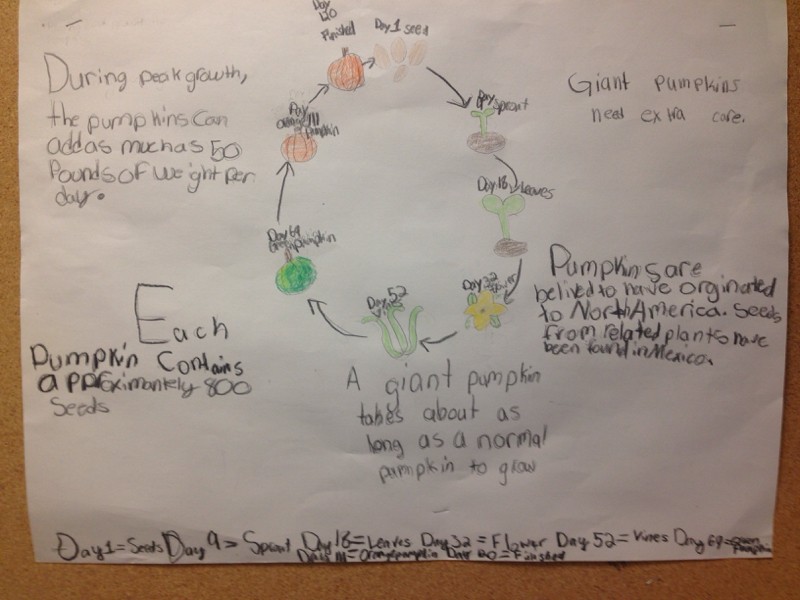 During peak growth,
the pumpkins can
add as much as 50
Pounds of weight per
day.
Day
120
Finished
Day 1 seed
Day sprout
Day 18 Leaves
Day 32
Day 52
Day 69
Green pumpkin
Day 111
orange
pumpkin
Giant pumpkins
need extra care.
Pumpkins are
belived to have orginated
to North America. Seeds
from related plants have
been found in Mexico.
Each
Pumpkin Contains
approximantely 800
Seeds
A giant pumpkin
takes about as
long as a normal
pumpkin to grow
Day 1 = Seeds Day 9 = Sprout Day 18 = Leaves Day 32 = Flower Day 52 = Vines Day 69 = Green Pumpkin
Day 111 = Orange pumpkin Day 120 = Finished